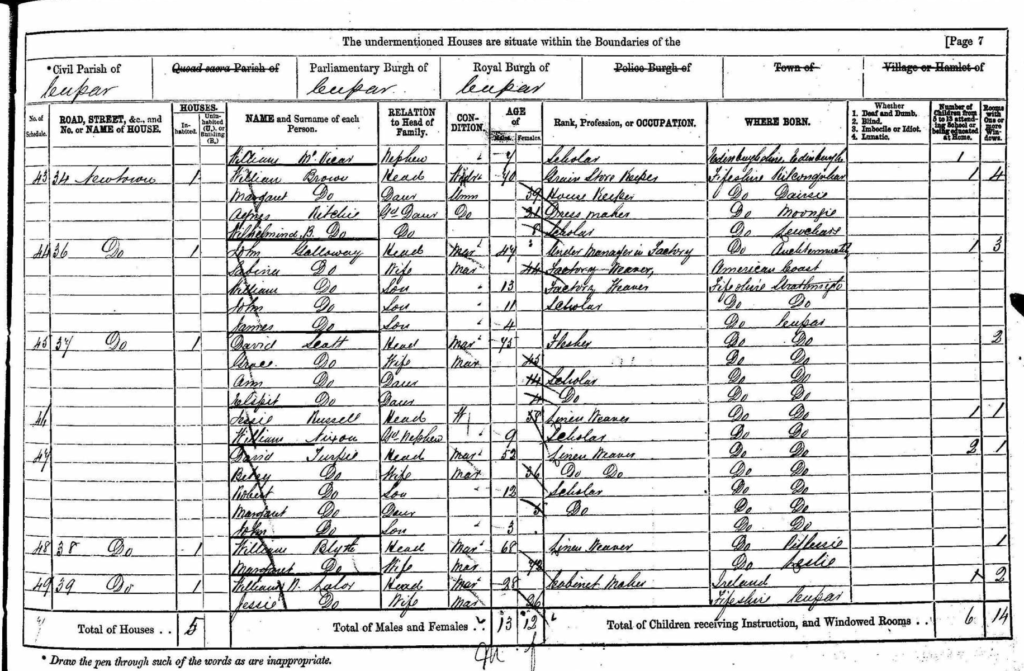 The undermentioned Houses are situate within the Boundaries of the [Page 7
*Civil Parish of Cupar Quoad sacra Parish of Parliamentary Burgh of Cupar Royal Burgh of Cupar Police Burgh of Town of Village or Hamlet of
No. of Schedule. ROAD, STREET, &c., and No. or NAME of HOUSE. HOUSES- Inhabited. Uninhabited (U.), or Building (B.) NAME and Surname of each Person. RELATION to Head of Family. CONDITION. AGE of Males. Females. Rank, Profession, or OCCUPATION. WHERE BORN. Whether 1. Deaf and Dumb. 2. Blind. 3. Imbecile or Idiot. 4. Lunatic. Number of Children from 5 to 13 attending School or being educated at Home. Rooms with One or more Windows.
William McVicar Nephew " 7 Scholar Edinburghshire Edinburgh 1
43 34 Newtown 1 William Brown Head 70 Grain Store Keeper Fifeshire Kilconquhar 1 4
Margaret Do Daur Unm 39 House Keeper Do Dairsie
Agnes Ritchie Gd Daur Do 21 Dress maker Do
Wilhelmina B. Do Do 8 Scholar Do Leuchars
44 36 Do 1 John Galloway Head Mard 47 Under Manager in Factory Do Auchtermuchty 1 3
Sabina Do Wife Mar 44 Factory Weaver American Coast
William Do Son " 13 Factory Weaver Fifeshire Strathmiglo
John Do Son " 11 Scholar Do Do
James Do Son " 4 Do Cupar
45 37 Do 1 David Scott Head Mard 45 Flesher Do Do 2
Grace Do Wife Mar 45 Do Do
Ann Do Daur 14 Scholar Do Do
Do Daur Do Do Do
46 Jessie Russell Head W 58 Linen Weaver Do Do 1 1
William Nixon Gd Nephew " 9 Scholar Do Do
47 David Head Mard 52 Linen Weaver Do Do 2 1
Betsy Do Wife Mar 36 Do Do Do Do
Robert Do Son " 12 Scholar Do Do
Margaret Do Daur 5 Do Do Do
John Do Son " 3 Do Do
48 38 Do 1 William Blyth Head Mard 68 Linen Weaver Do 1
Margaret Do Wife Mar Do Leslie
49 39 Do 1 William Head Mar 28 Cabinet Maker Ireland 1 2
Jessie Do Wife Mar 26 Fifeshire Cupar
Total of Houses . . 5 Total of Males and Females . . 13 12 Total of Children receiving Instruction, and Windowed Rooms . . 6 14
* Draw the pen through such of the words as are inappropriate.